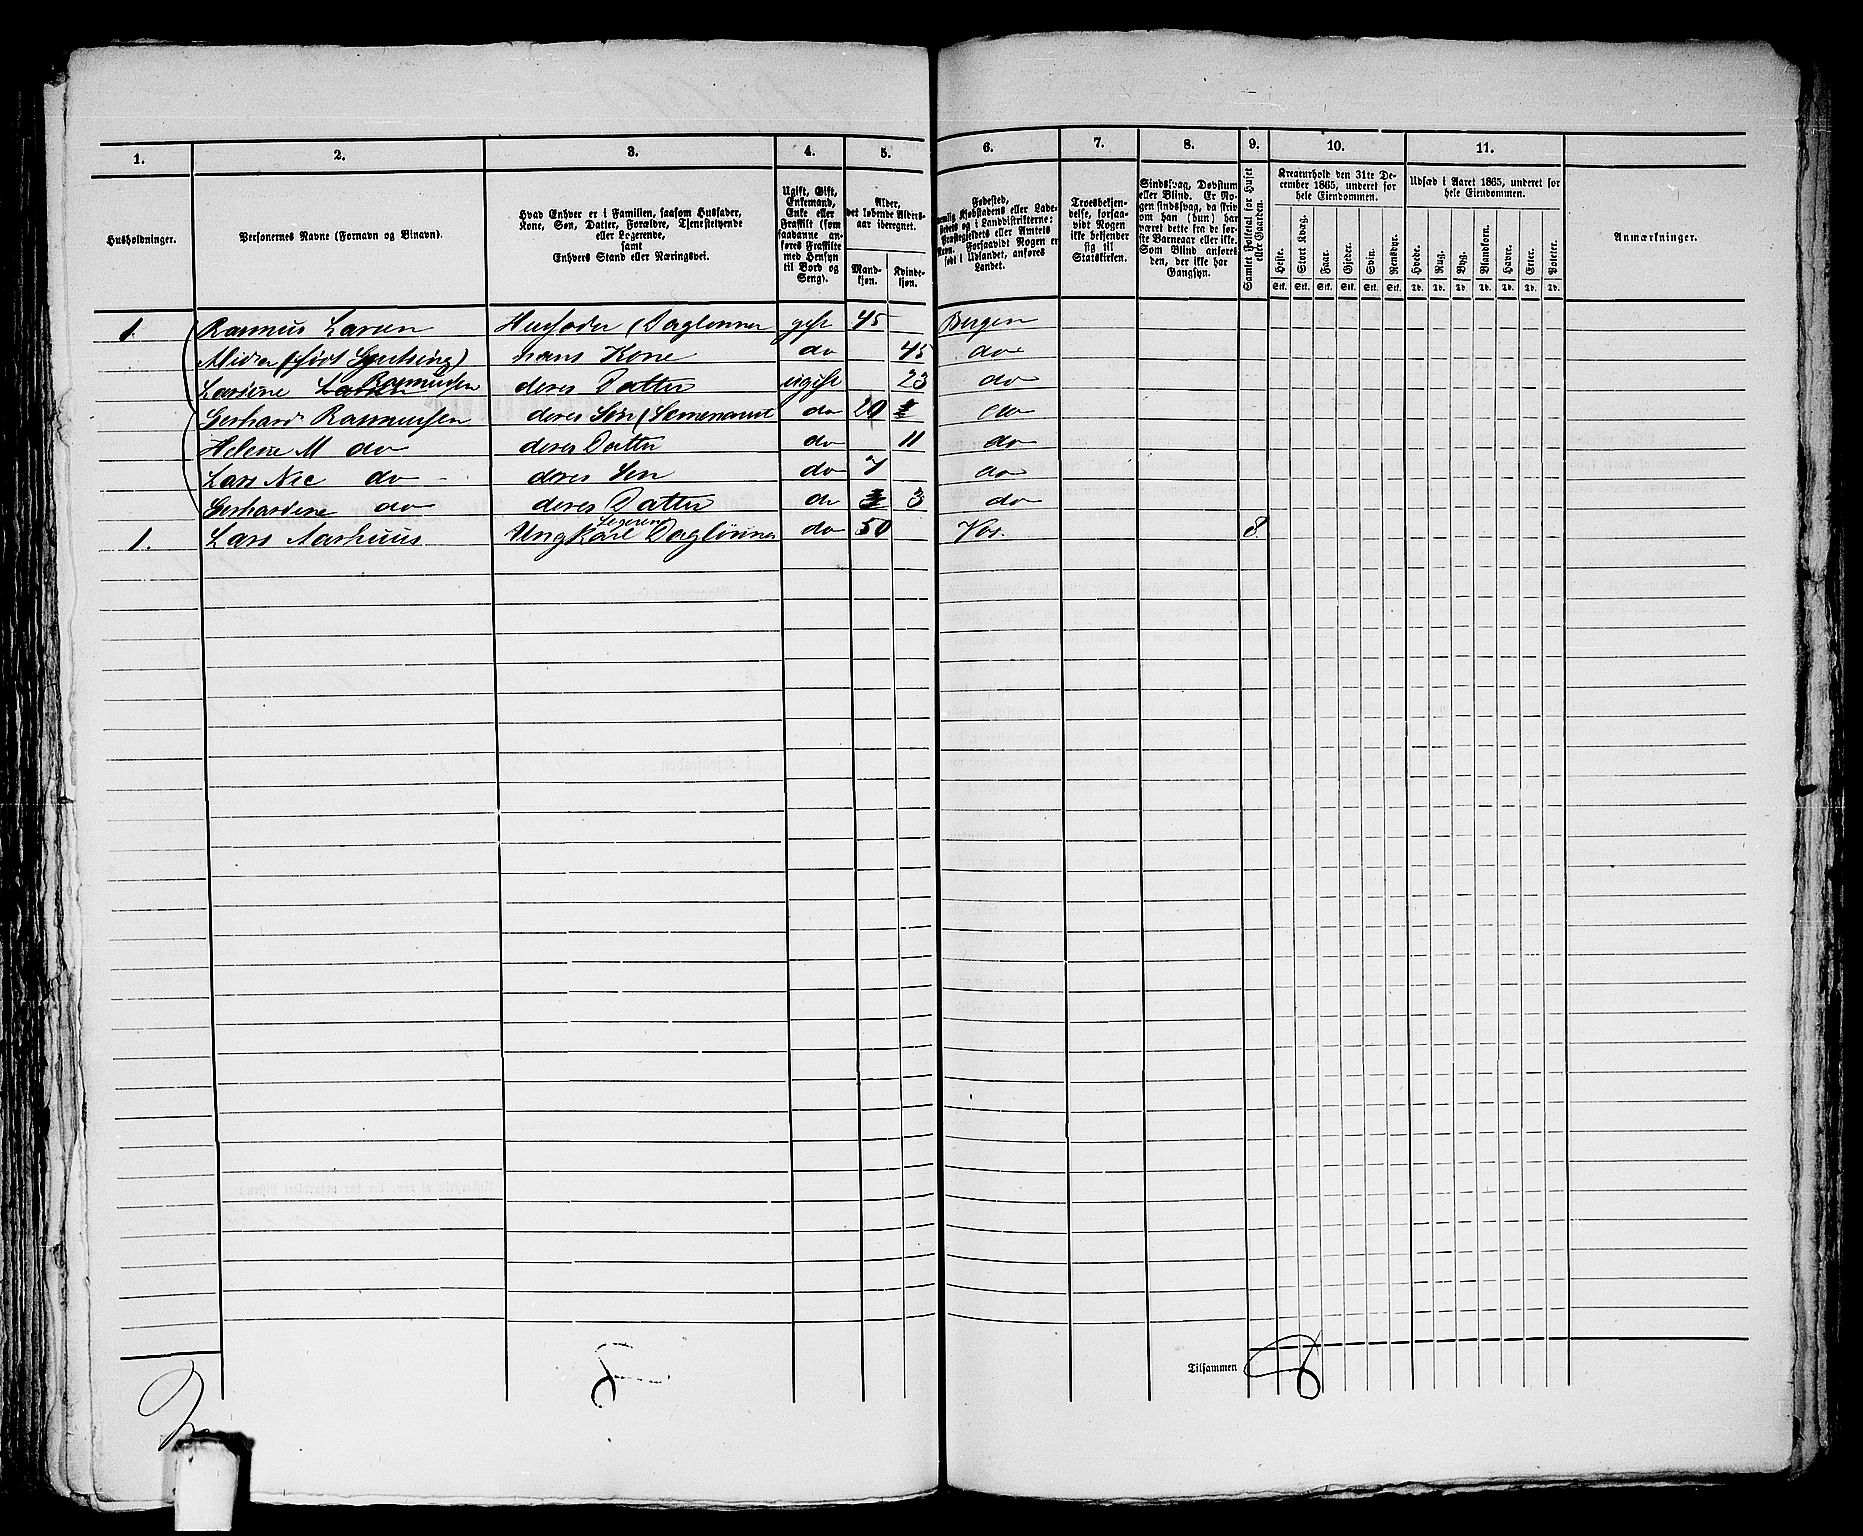 1. 2. 3. 4. 5. 6. 7. 8. 9. 10. 11.
Husholdninger.
Personernes Navne (Fornavn og Tilnavn).
Hvad Enhver er i Familien, saasom Husfader,
Kone, Søn, Datter, Forældre, Tjenestetyende
eller Logerende,
samt
Enhvers Stand eller Næringsvei.
Ugift, Gift,
Enkemand,
Enke eller
Fraskilt (som
saadanne anføres
Fraskilte
med Hensyn
til Bord og
Seng).
Alder,
det løbende Alders-
aar iberegnet.
Mand-
kjøn.
Kvinde-
kjøn.
Fødested,
nemlig Kjøbstadens eller Lade-
stedets og i Landdistrikterne:
Præstegjeldets eller Amtets
Navn. Forsaavidt Nogen er
født i Udlandet, anføres
Landet.
Troesbekjen-
delse, forsaa-
vidt Nogen
ikke bekjender
sig til
Statskirken.
Sindssvag, Døvstum
eller Blind. Er No-
gen sindssvag, da skriv
om han (hun) har
været dette fra de før-
ste Barneaar eller ikke.
Som Blind anføres
den, der ikke har
Gangsyn.
Samlet Folketal for Huset
eller Gaarden.
Kreaturhold den 31te De-
cember 1865, underet for
hele Eiendommen.
Heste. Stort Kvæg. Faar. Gjeder. Svin. Rensdyr.
Stk. Stk. Stk. Stk. Stk. Stk.
Udsæd i Aaret 1865, underet for
hele Eiendommen.
Hvede. Rug. Byg. Blandkorn. Havre. Erter. Poteter.
Td. Td. Td. Td. Td. Td. Td.
Anmærkninger.
1 Rasmus Larsen Husfader (Daglønner gift 45 Bergen
hans Kone do 45 do
Lasine Larsen Rasmusen deres Datter ugift 23 do
Gerhard Rasmusen deres Søn do 20 do
Helene M do deres Datter do 11 do
Lars Nic do deres Søn do 7 do
Gerhardine do deres Datter do 3 do
Logerend
1. Lars Aarhuus Ungkarl Daglønner do 50 Vos. 8
Tilsammen 8